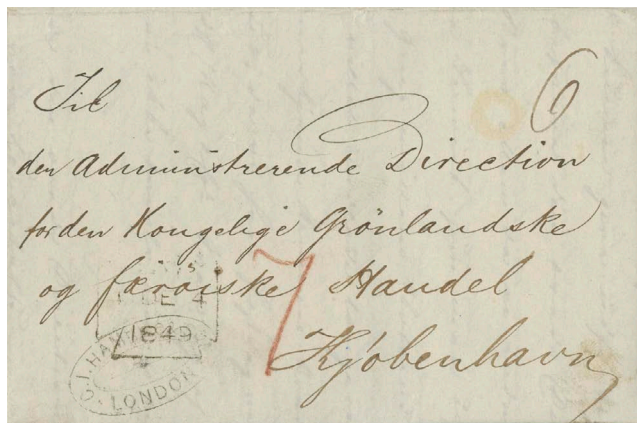 Til
6
den Administrerende Direction
for den Kongelige Grönlandske
og færöiske Handel
7
DE 4
1849
Kjöbenhavn
LONDON